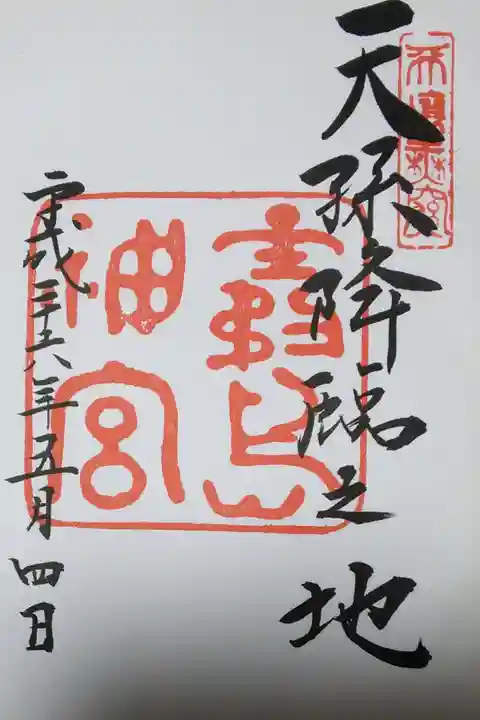 天孫降臨之地
霧島
神宮
平成二十六年五月四日